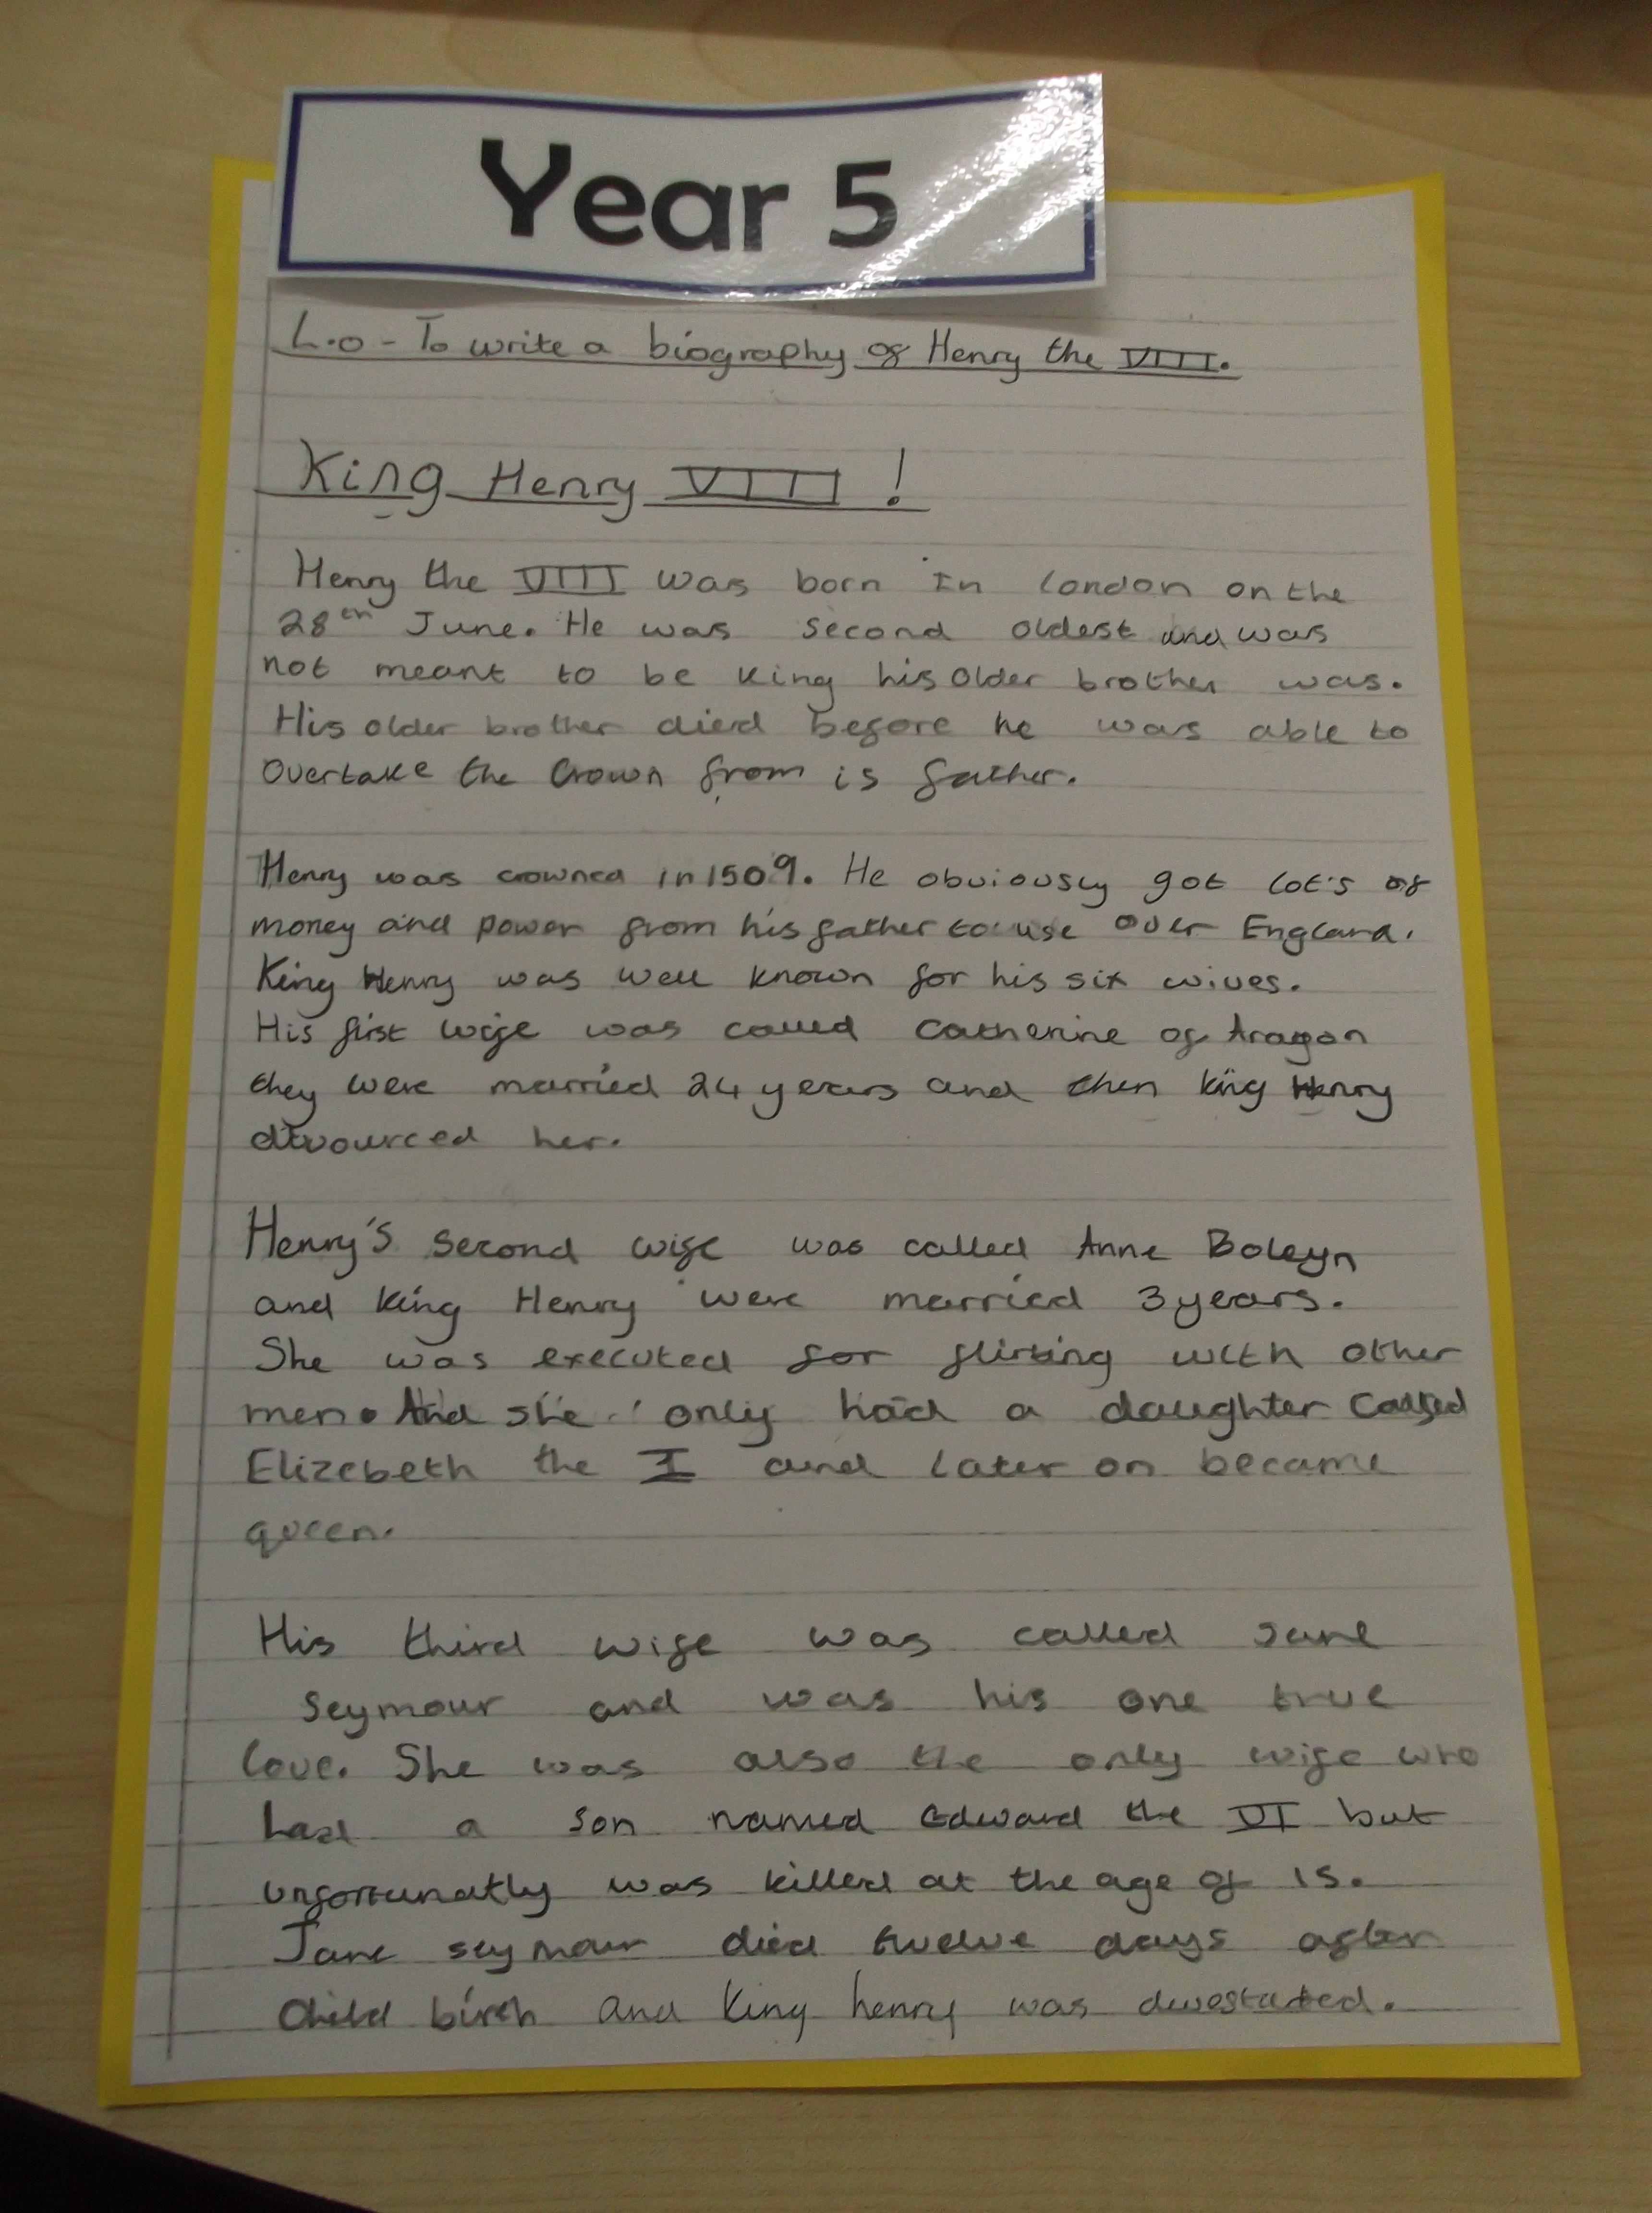 Year 5
L.o - To write a biography of Henry the VIII.
King Henry VIII !
Henry the VIII was born in london on the
28th June. He was second oldest and was
not meant to be king his older brother was.
His older brother died before he was able to
overtake the Crown from is father.
Henry was crowned in 1509. He obviously got lot's of
money and power from his father to use over England.
King Henry was well known for his six wives.
His first wife was called Catherine of Aragon
they were married 24 years and then king Henry
divourced her.
Henry's second wife was called Anne Boleyn
and King Henry were married 3 years.
She was executed for flirting with other
men. And she only had a daughter called
Elizebeth the I and later on became
queen.
His third wife was called Jane
Seymour and was his one true
love. She was also the only wife who
had a son named Edward the VI but
unfortunatly was killed at the age of 15.
Jane seymour died twelve days after
child birth and King henry was devestated.